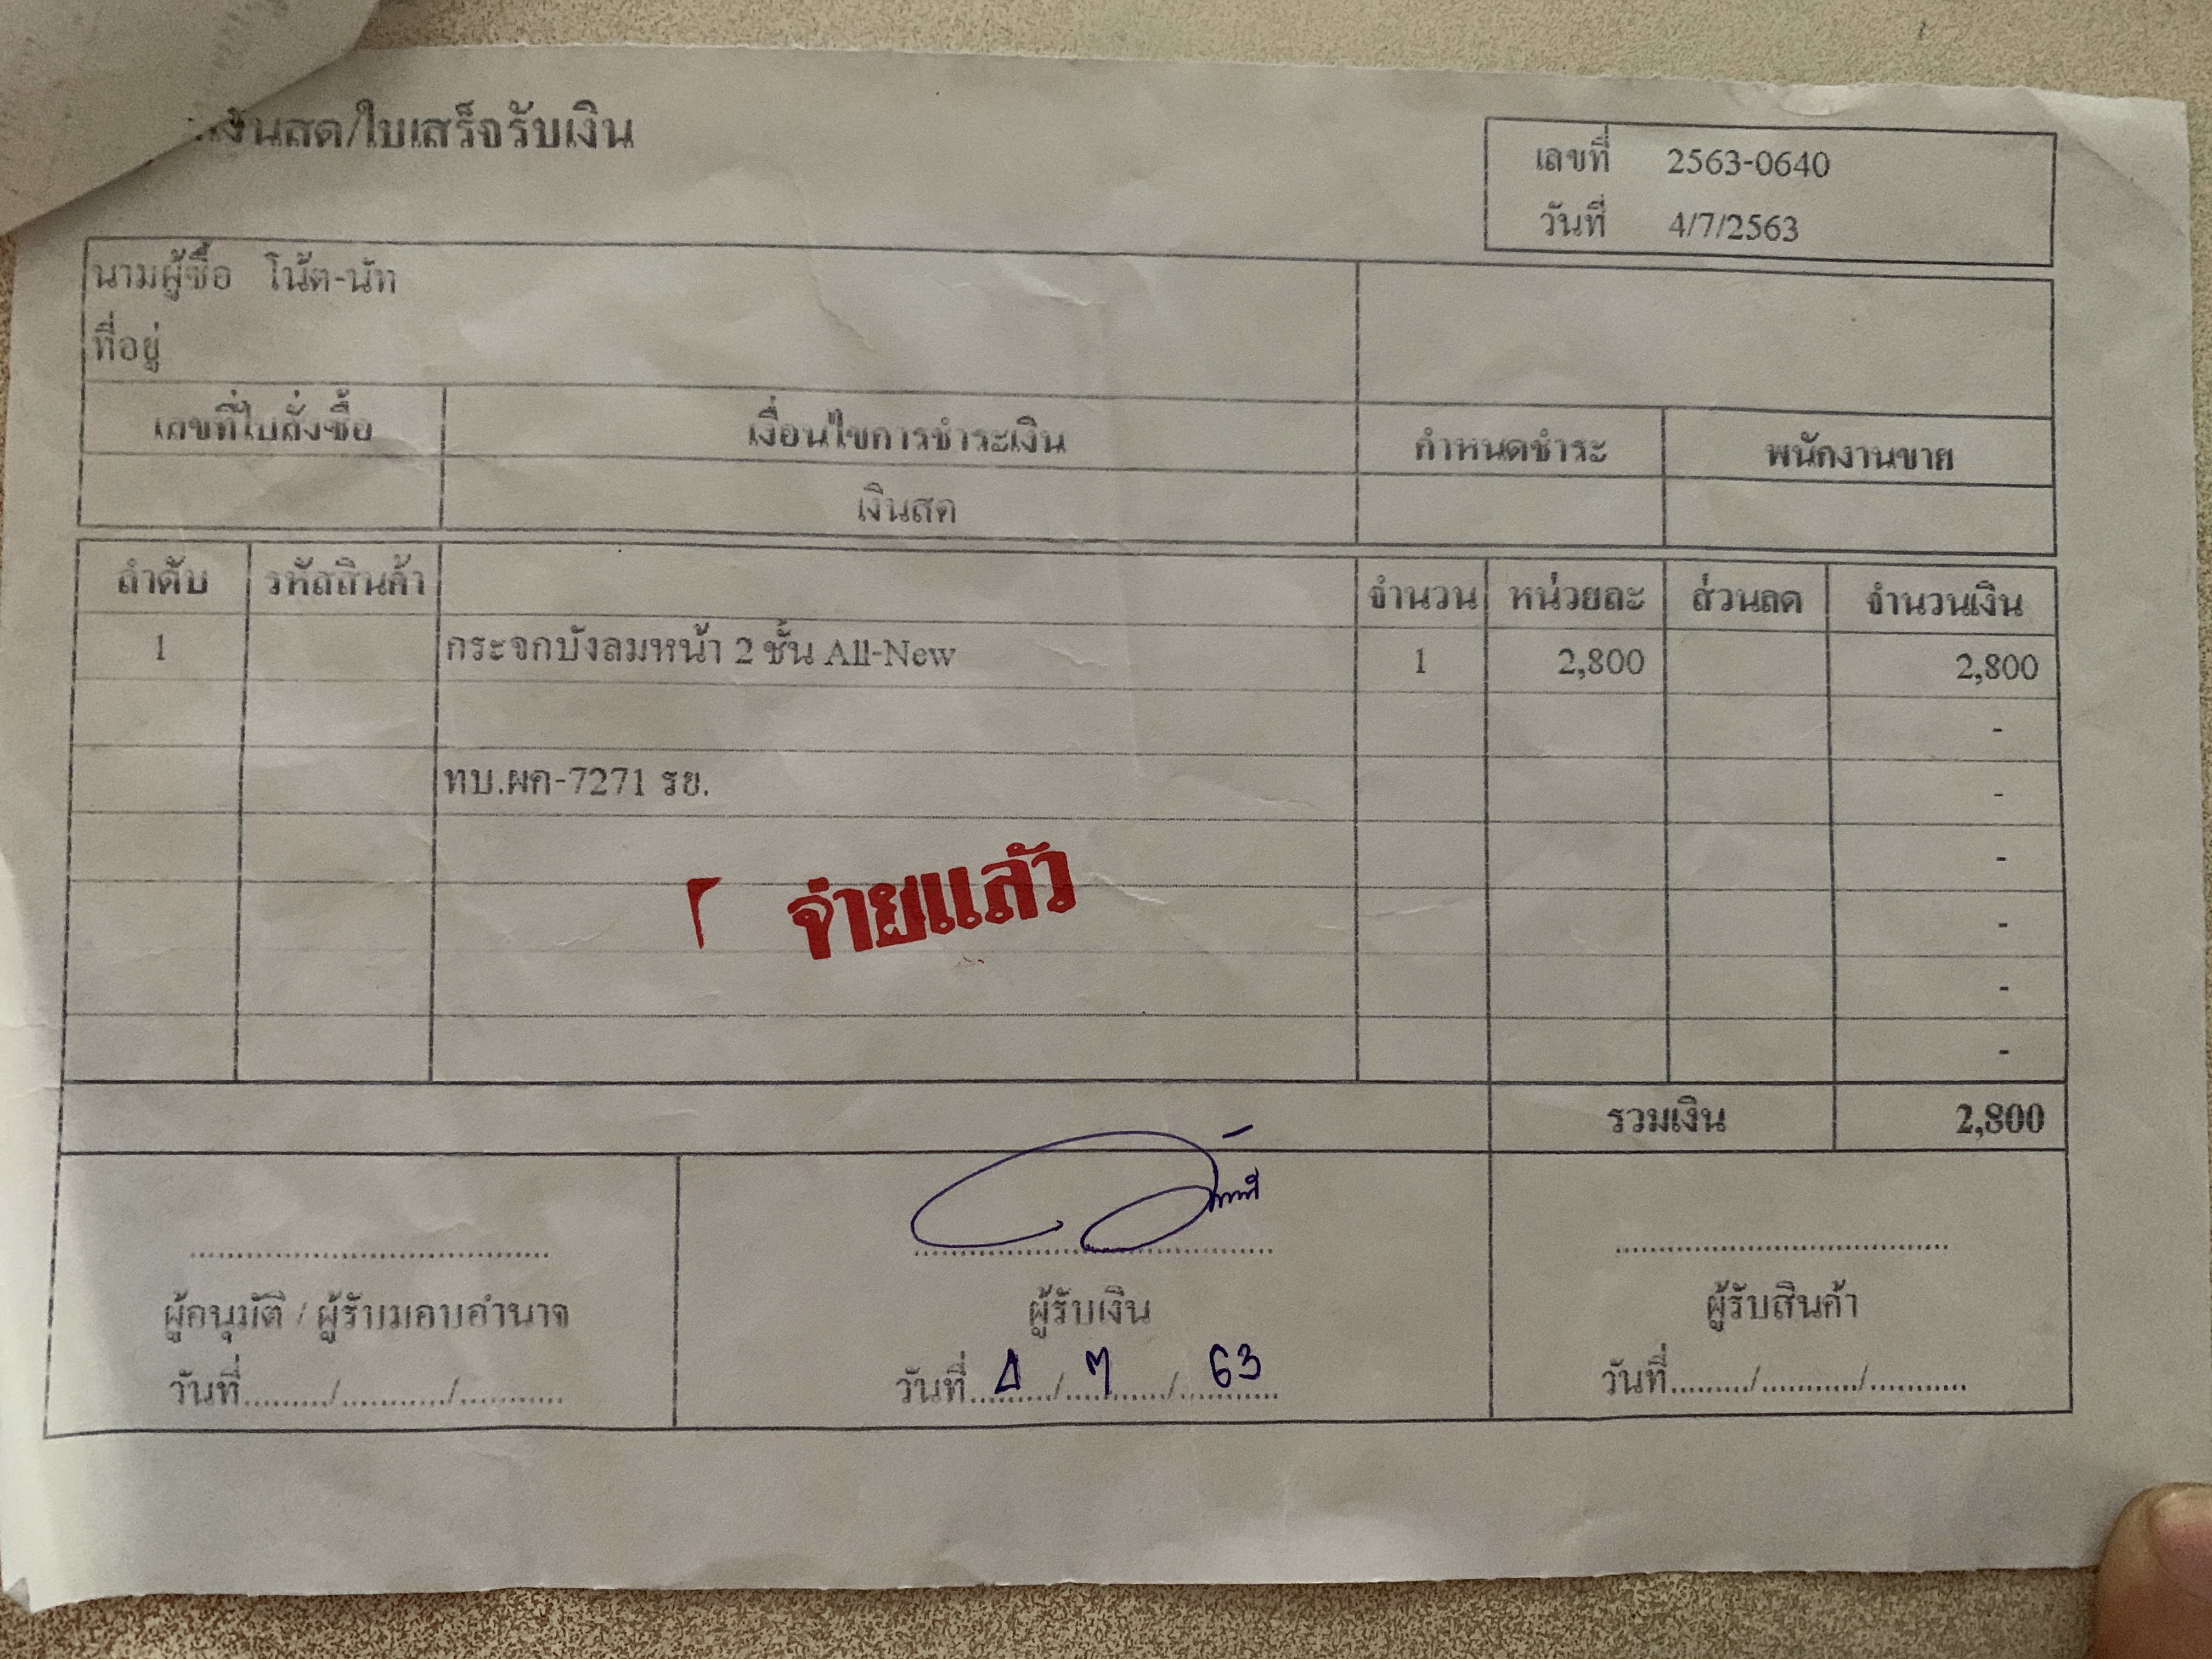 เงินสด/ใบเสร็จรับเงิน
เลขที่ 2563-0640
วันที่ 4/7/2563
นามผู้ซื้อ โน้ต-นัท
ที่อยู่
เลขที่ใบสั่งซื้อ เงื่อนไขการชำระเงิน กำหนดชำระ พนักงานขาย
เงินสด
ลำดับ รหัสสินค้า จำนวน หน่วยละ ส่วนลด จำนวนเงิน
1 กระจกบังลมหน้า 2 ชั้น All-New 1 2,800 2,800
-
ทบ.ผค-7271 รย. -
-
จ่ายแล้ว
-
-
-
รวมเงิน 2,800
ผู้อนุมัติ / ผู้รับมอบอำนาจ ผู้รับเงิน ผู้รับสินค้า
วันที่........./.........../........... วันที่ 4 / 7 / 63 วันที่........./.........../...........